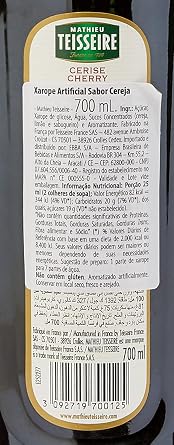 MATHIEU
TEISSEIRE
CERISE
CHERRY
Xarope Artificial Sabor Cereja
- Mathieu Teisseire - 700 mL. Ingr.: Açúcar,
Xarope de glicose, Água, Sucos Concentrados (cereja,
limão e sabugueiro) e Aromatizante. Fabricado na
França por Teisseire France SAS – 482 avenue Ambroise
Croizat – CS 70501 – 38926 Crolles Cedex. Produzido e
distribuído por: EBBA S/A – Empresa Brasileira de
Bebidas e Alimentos S/A – Rodovia BR 304 – Km 55,2 –
Aracati / CE – CEP: 62800-000 - CNPJ
07.604.556/0006-40 – Registro do estabelecimento no
MAPA nº CE 000555-0 – Validade e lote vide
embalagem. Informação Nutricional: Porção 25
ml (2 colheres de sopa). Valor Energético 82 kcal =
344 kj (4% VD*), Carboidratos 20 g (7% VD*), dos
quais açúcares 19 g (**).
*Não contém quantidades significativas de Proteínas,
Gorduras Totais, Gorduras Saturadas, Gorduras Trans,
Fibra alimentar e Sódio." (*) % Valores Diários de
Referência com base em uma dieta de 2.000 kcal ou
8.400 kj. Seus valores diários podem ser maiores ou
menores dependendo de suas necessidades
energéticas. Sugestão de preparo: 1 parte de xarope
para 7 partes de água.
Não contém glúten. Aromatizado artificialmente.
Conservar em local seco, fresco e arejado.
Fabriqué en France par / Manufactured in France by
Teisseire France S.A.S.
CS 70501 - 38926 Crolles Cedex - FRANCE
is a trade mark of Teisseire France S.A.S.
700 ml
3 092719 700125
www.mathieuteisseire.com